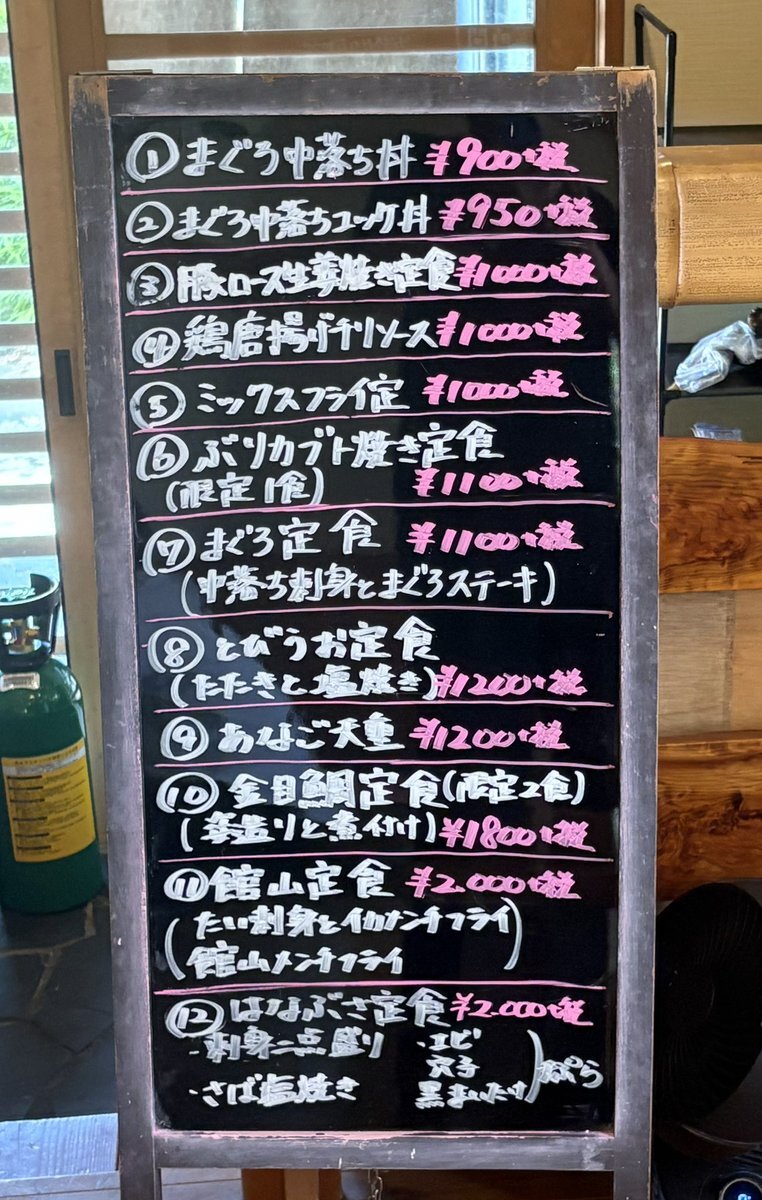 ① まぐろ中落ち丼 ¥900+税
② まぐろ中落ちユッケ丼 ¥950+税
③ 豚ロース生姜焼き定食 ¥1000+税
④ 鶏唐揚げチリソース ¥1000+税
⑤ ミックスフライ定 ¥1000+税
⑥ ぶりカブト焼き定食
(限定1食) ¥1100+税
⑦ まぐろ定食 ¥1100+税
(中落ち刺身とまぐろステーキ)
⑧ とびうお定食
(たたきと塩焼き) ¥1200+税
⑨ あなご天重 ¥1200+税
⑩ 金目鯛定食(限定2食)
(姿造りと煮付け) ¥1800+税
⑪ 館山定食 ¥2.000+税
(たい刺身とイカメンチフライ
館山メンチフライ)
⑫ はなぶさ定食 ¥2.000+税
・刺身二点盛り ・エビ
穴子
・さば塩焼き 黒まいたけ